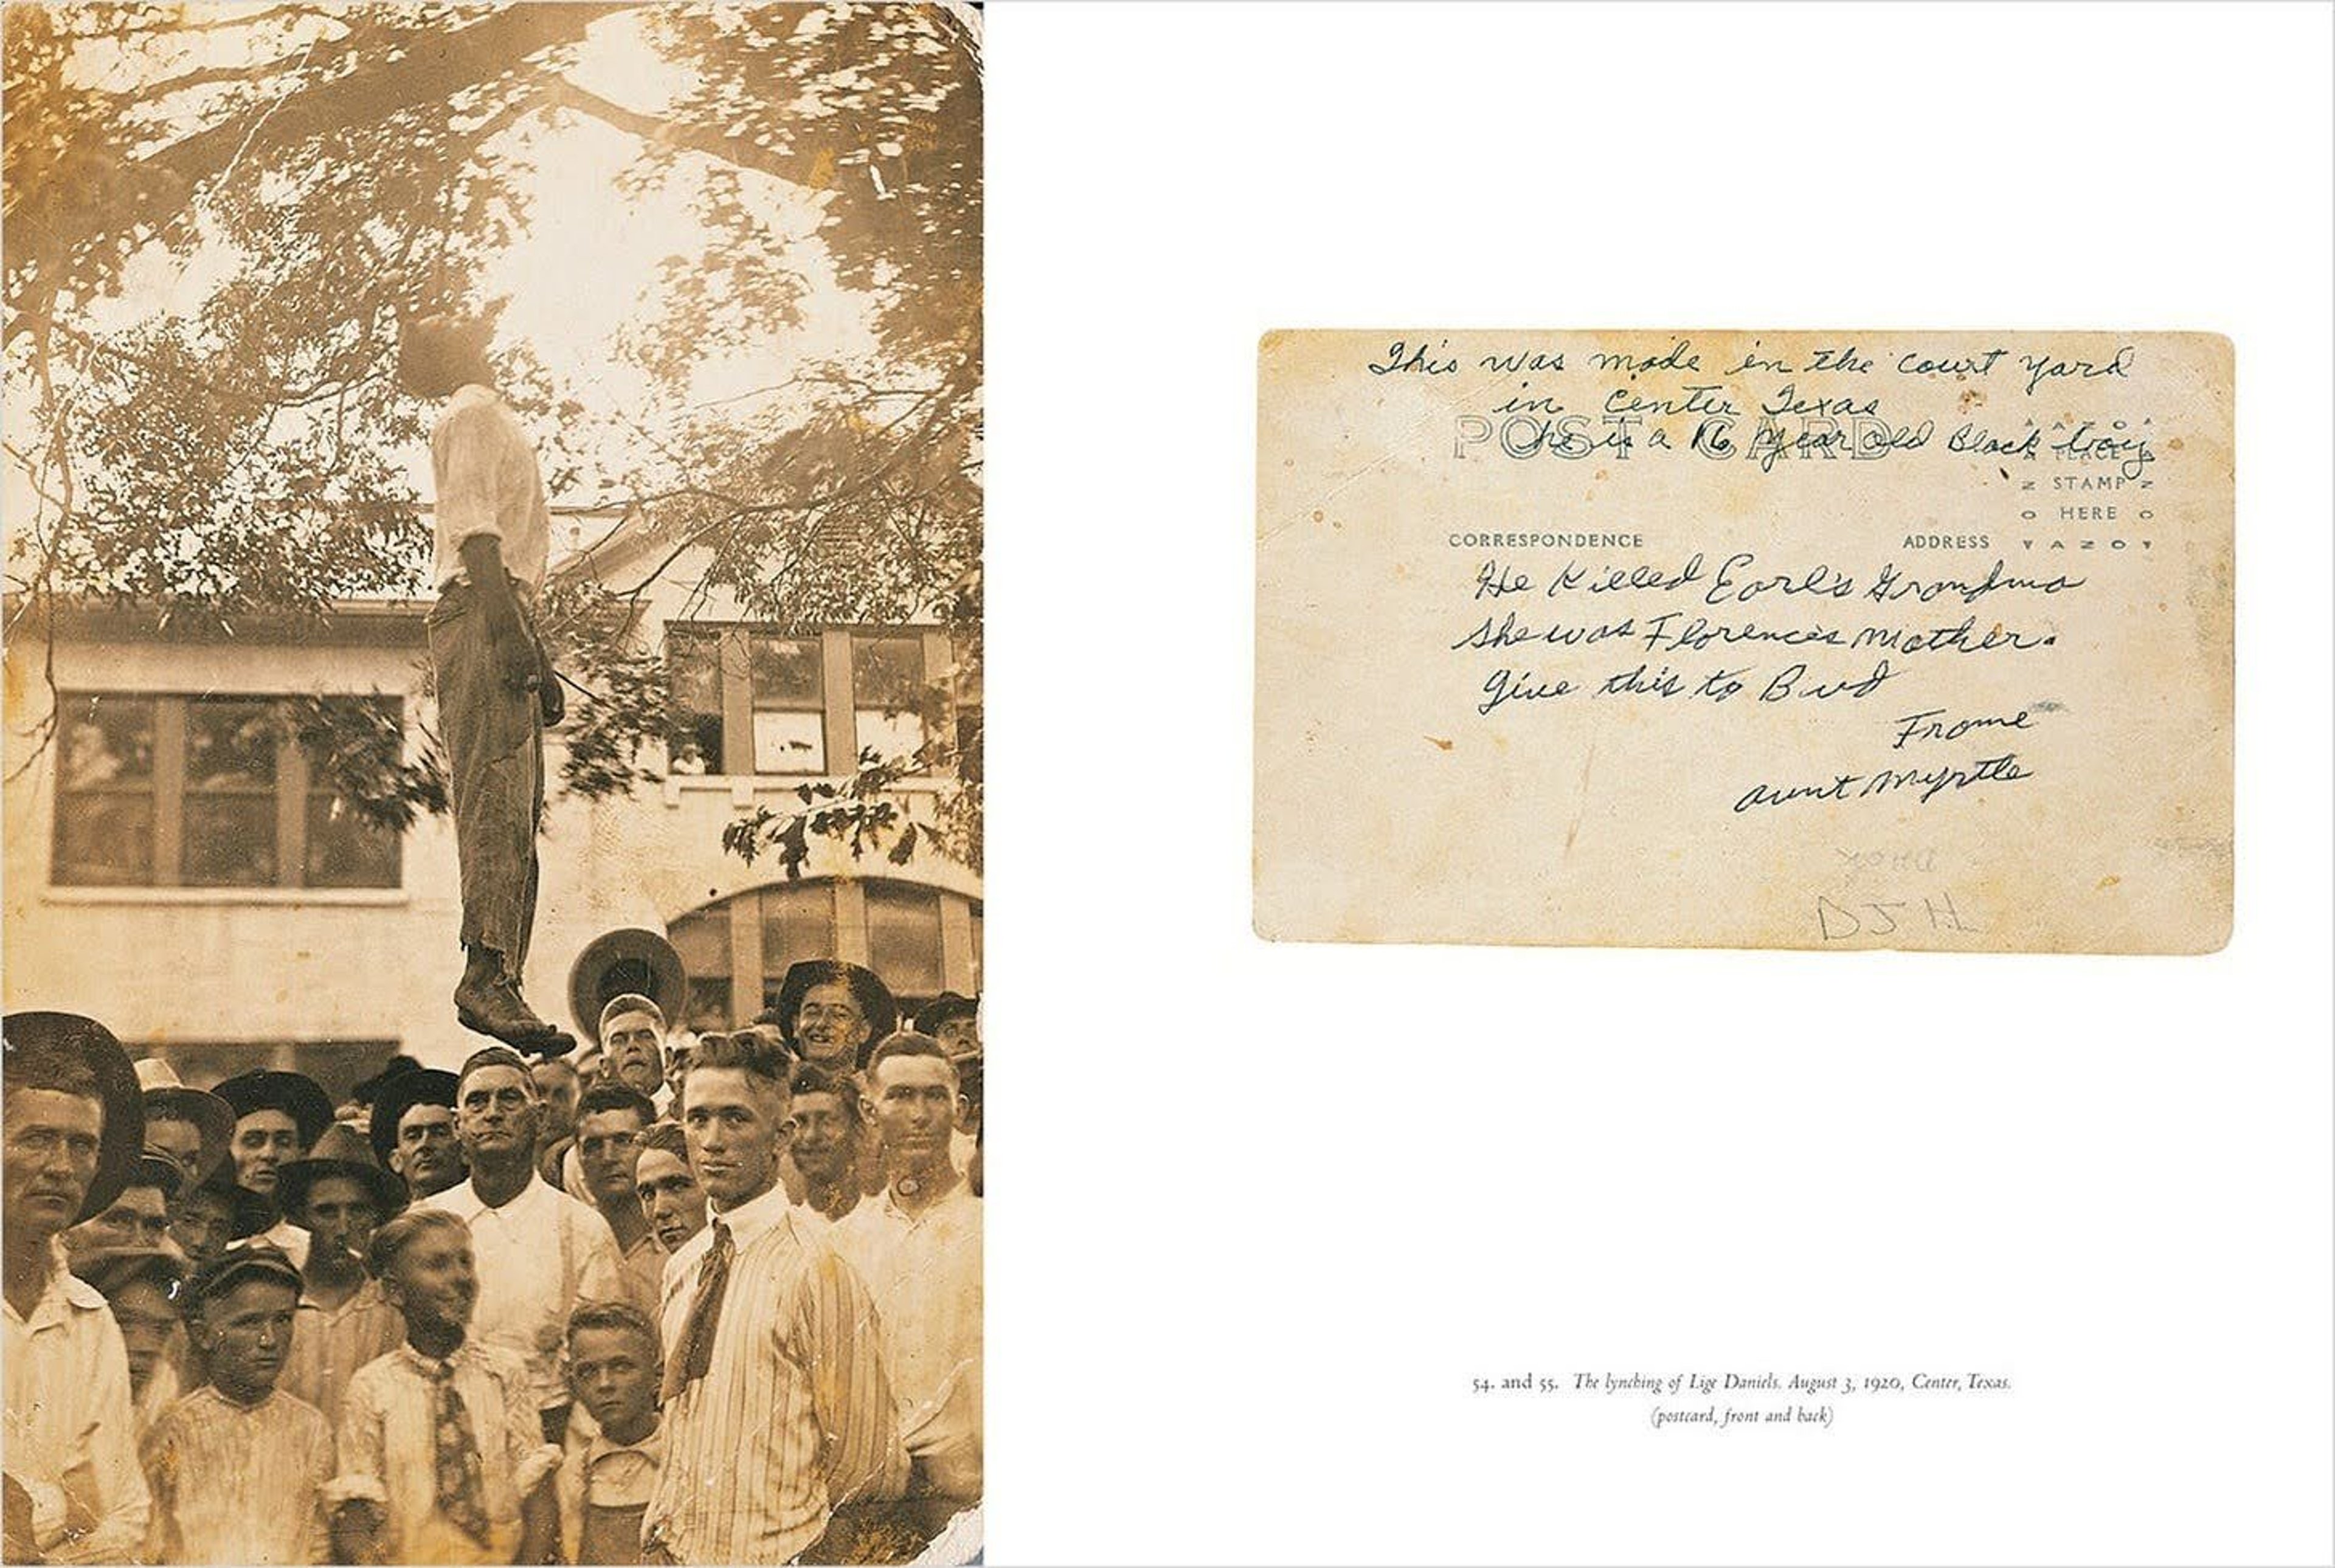 This was made in the court yard
in Center Texas
POST CARD
he is a 16 year old Black boy
PLACE
STAMP
HERE
CORRESPONDENCE
ADDRESS
AZO
He Killed Earl's Grandma
She was Florence's mother.
Give this to Bud
From
Aunt Myrtle
DJH
54. and 55. The lynching of Lige Daniels. August 3, 1920, Center, Texas.
(postcard, front and back)